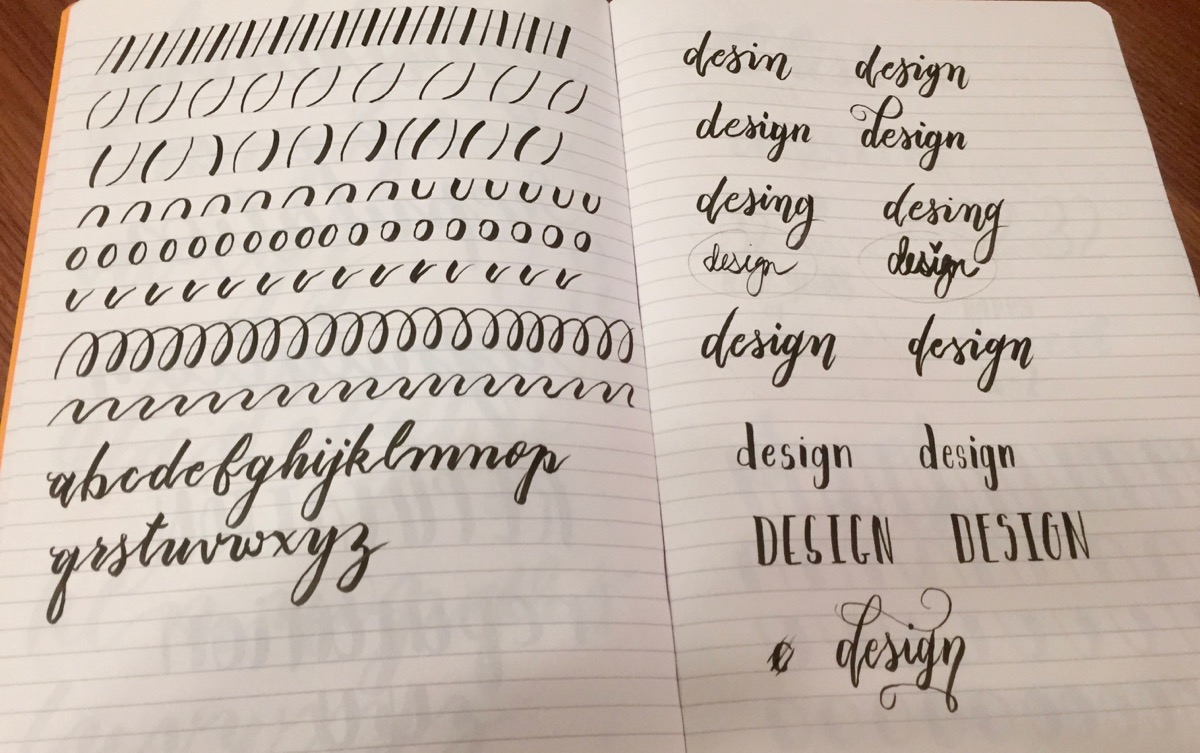 abcdefghijklmnop
qrstuvwxyz
desin design
design design
desing desing
design design
design design
design design
DESIGN DESIGN
design